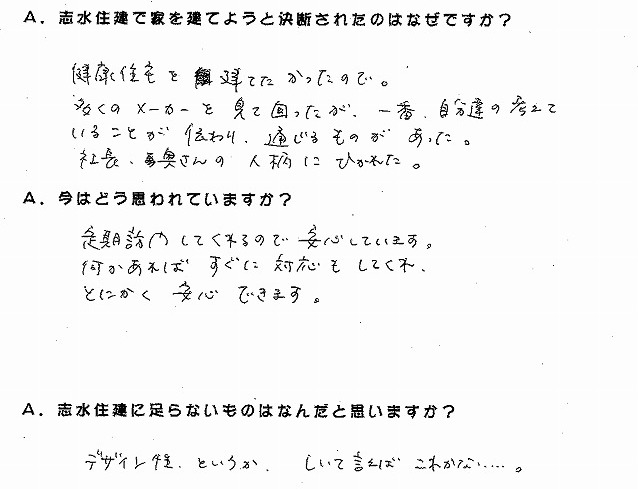 A．志水住建で家を建てようと決断されたのはなぜですか？
健康住宅を建てたかったので。
多くのメーカーを見て回ったが、一番、自分達の考えて
いることが伝わり、通じるものがあった。
社長、奥さんの人柄にひかれた。
A．今はどう思われていますか？
定期訪問してくれるので安心しています。
何かあればすぐに対応もしてくれ、
とにかく安心できます。
A．志水住建に足らないものはなんだと思いますか？
デザイン性、というか、しいて言えばこれかな､､､､､。